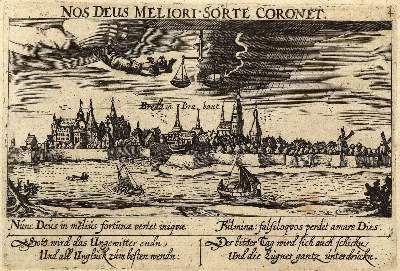 NOS DEUS MELIORI SORTE CORONET.
Breda in Brabant
Nunc Deus in melius fortuna vertet iniqua.
Fulmina: falsiloquos perdet amare Dies.
Gott wird das Ungewitter endn,
Und all Unglück zum besten wendn:
Der bitter Tag wird sich auch schickn,
Und die Lügner gantz unterdrückn.